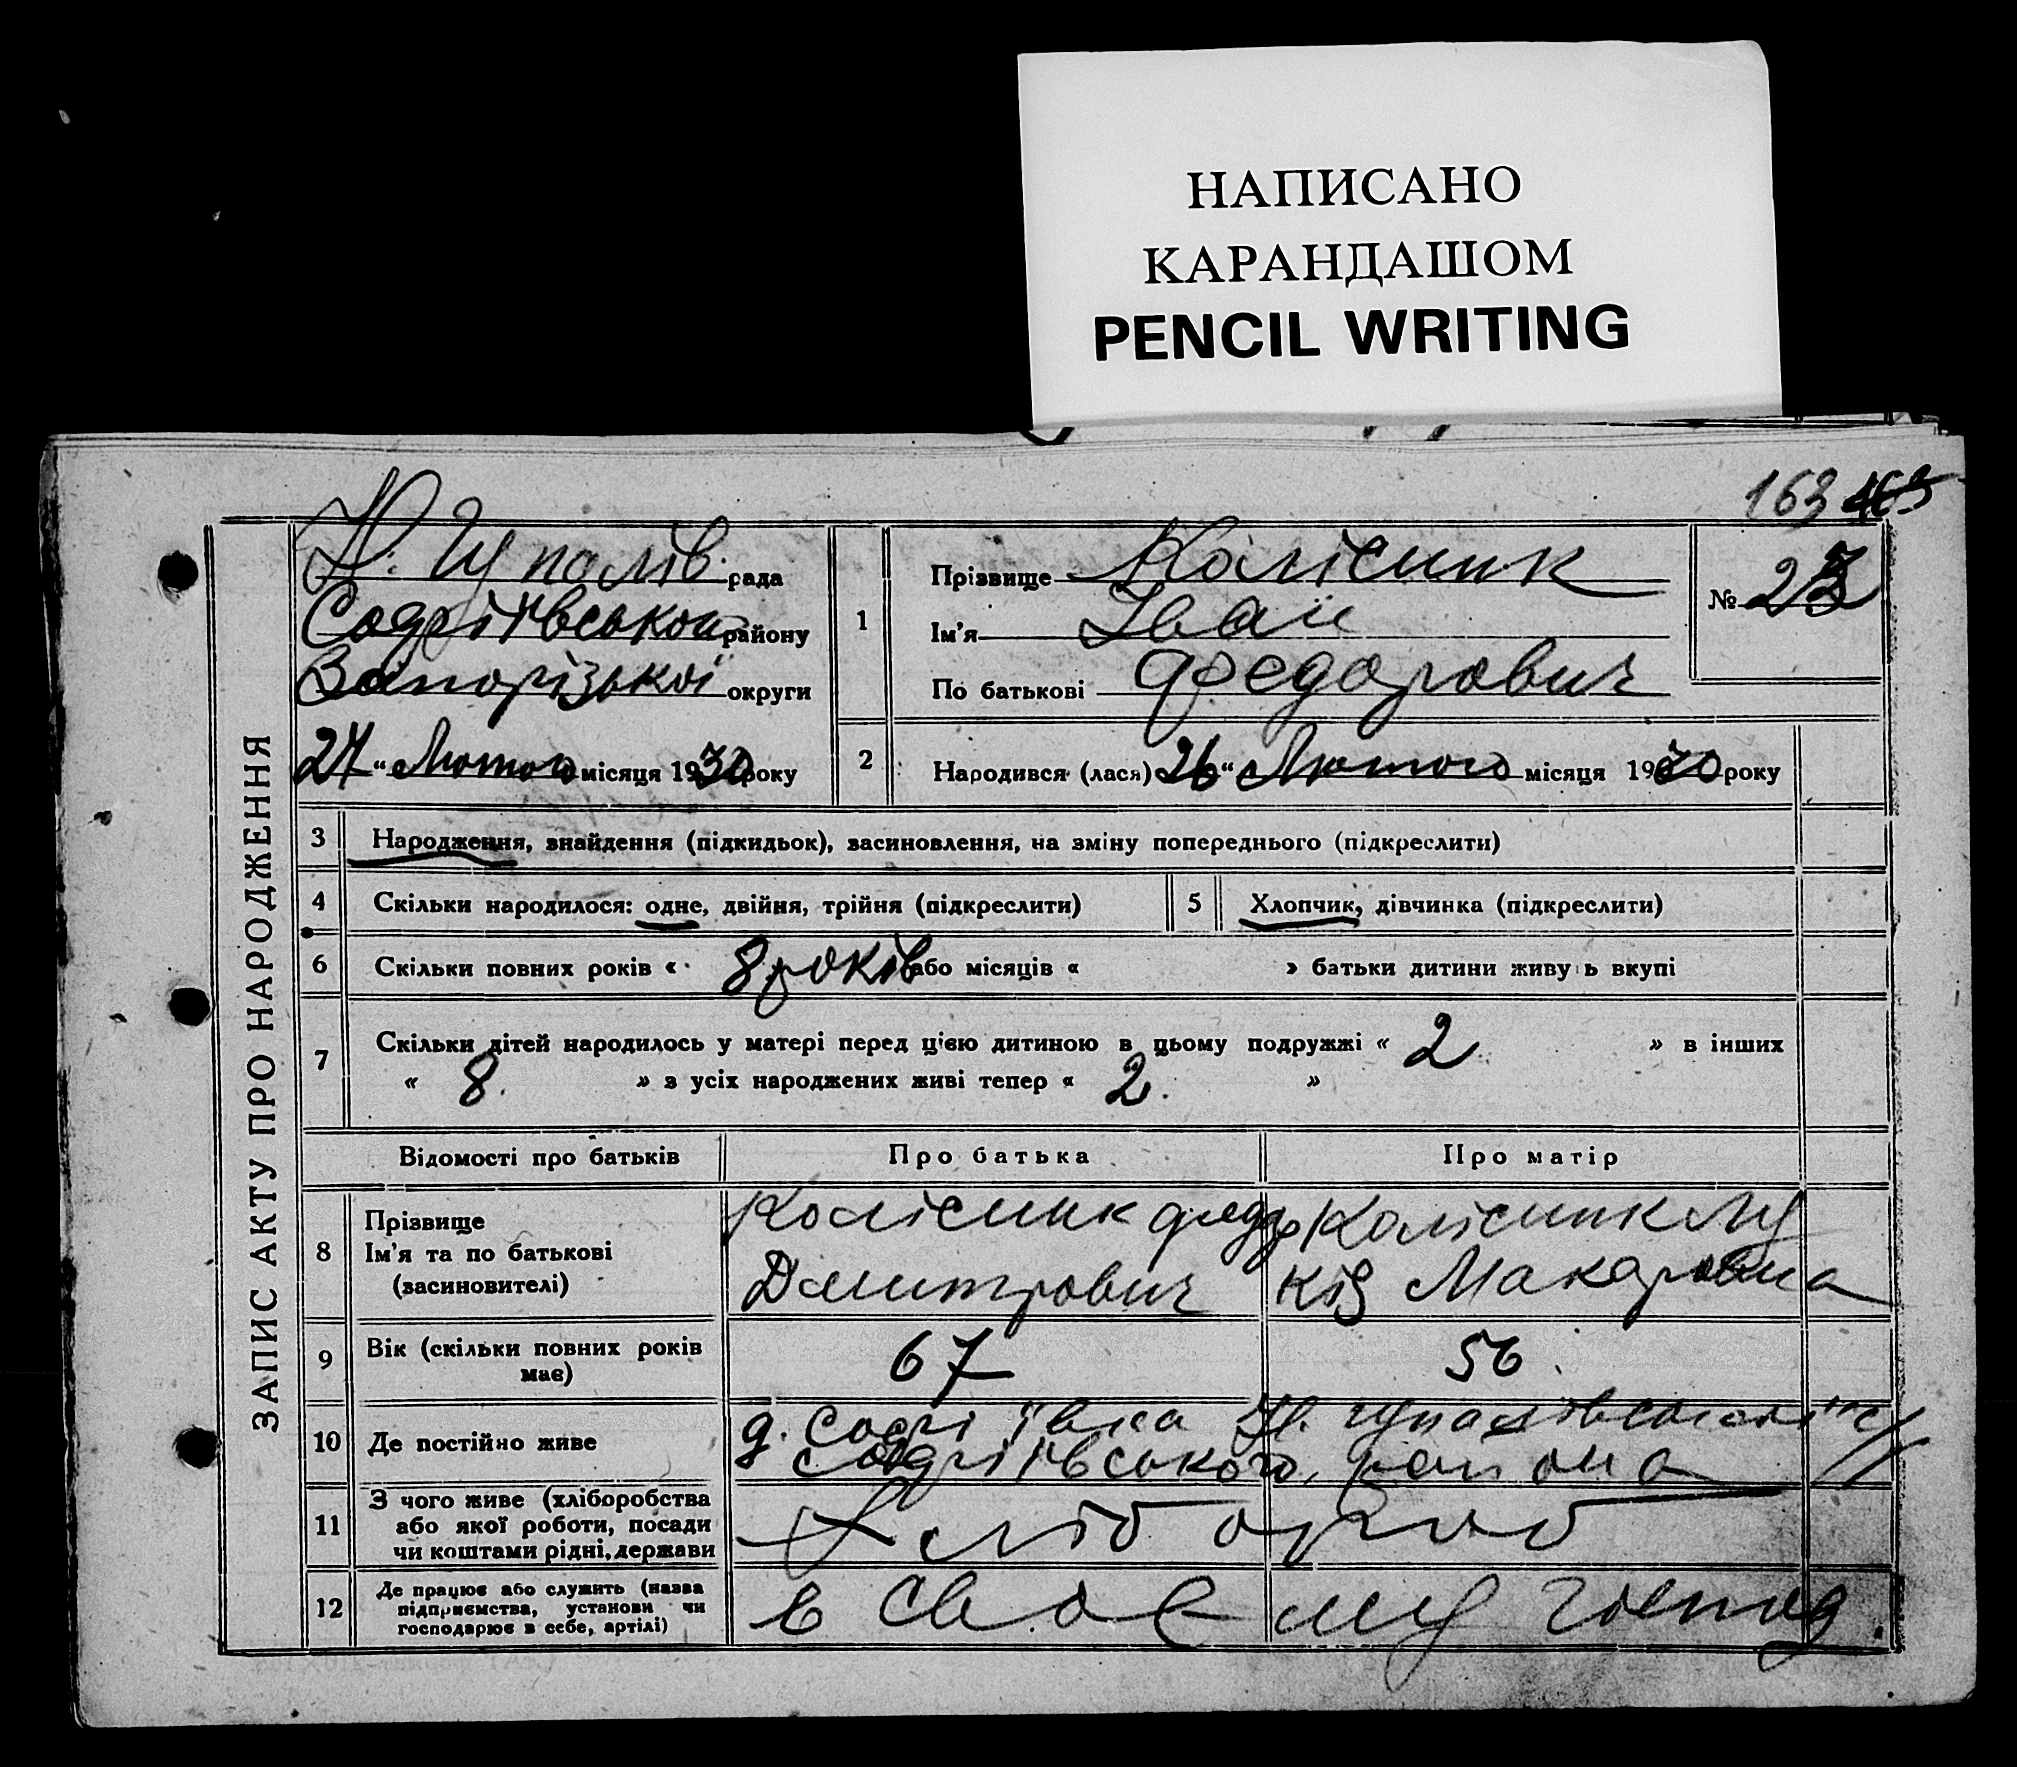 НАПИСАНО
КАРАНДАШОМ
PENCIL WRITING
163 163
ЗАПИС АКТУ ПРО НАРОДЖЕННЯ
рада
району
Запорізької округи
27 “ Лютого місяця 1930 року
1
Прізвище Колісник
Ім'я Іван
По батькові Федорович
№ 23
2
Народився (лася) „26“ Лютого місяця 1930 року
3 Народження, знайдення (підкидьок), засиновлення, на зміну попереднього (підкреслити)
4 Скільки народилося: одне, двійня, трійня (підкреслити) 5 Хлопчик, дівчинка (підкреслити)
6 Скільки повних років « 8 років або місяців « » батьки дитини живу ь вкупі
7 Скільки дітей народилось у матері перед цією дитиною в цьому подружжі « 2 » в інших
« 8. » з усіх народжених живі тепер « 2. »
Відомості про батьків Про батька Про матір
8 Прізвище
Ім'я та по батькові
(засиновителі)
Колісник Федор
Дмитрович
Колісник
Макаровна
9 Вік (скільки повних років має) 67 56.
10 Де постійно живе
району
11 З чого живе (хліборобства
або якої роботи, посади
чи коштами рідні, держави
Хлібороб
12 Де працює або служить (назва
підприємства, установи чи
господарює в себе, артілі)
в своєму господ.